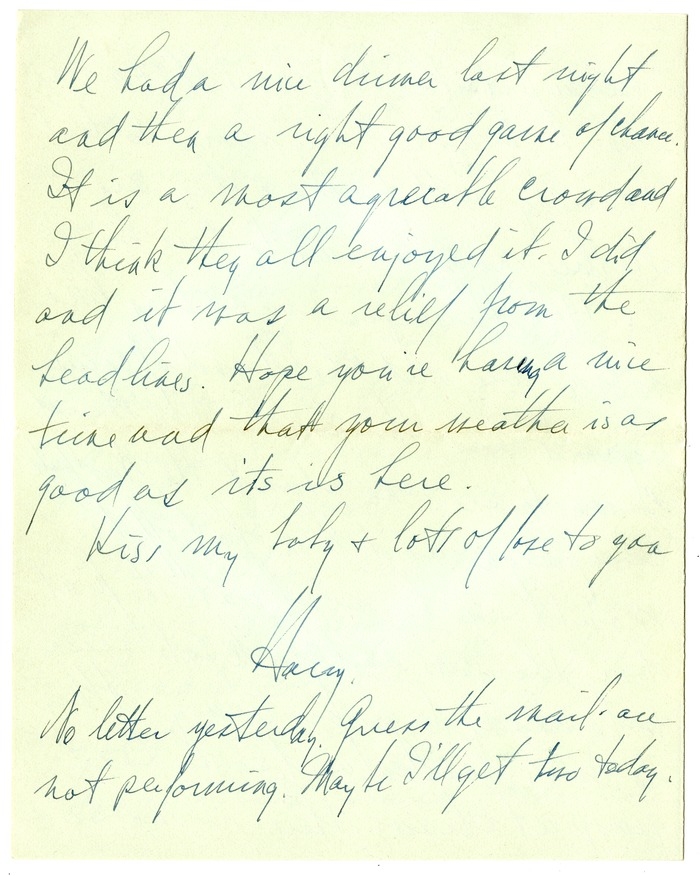 We had a nice dinner last night
and then a right good game of chance.
It is a most agreeable crowd and
I think they all enjoyed it. I did
and it was a relief from the
headlines. Hope you're having a nice
time and that your weather is as
good as its is here.
Kiss my baby & lots of love to you
Harry.
No letter yesterday. Guess the mails are
not performing. Maybe I'll get two today.